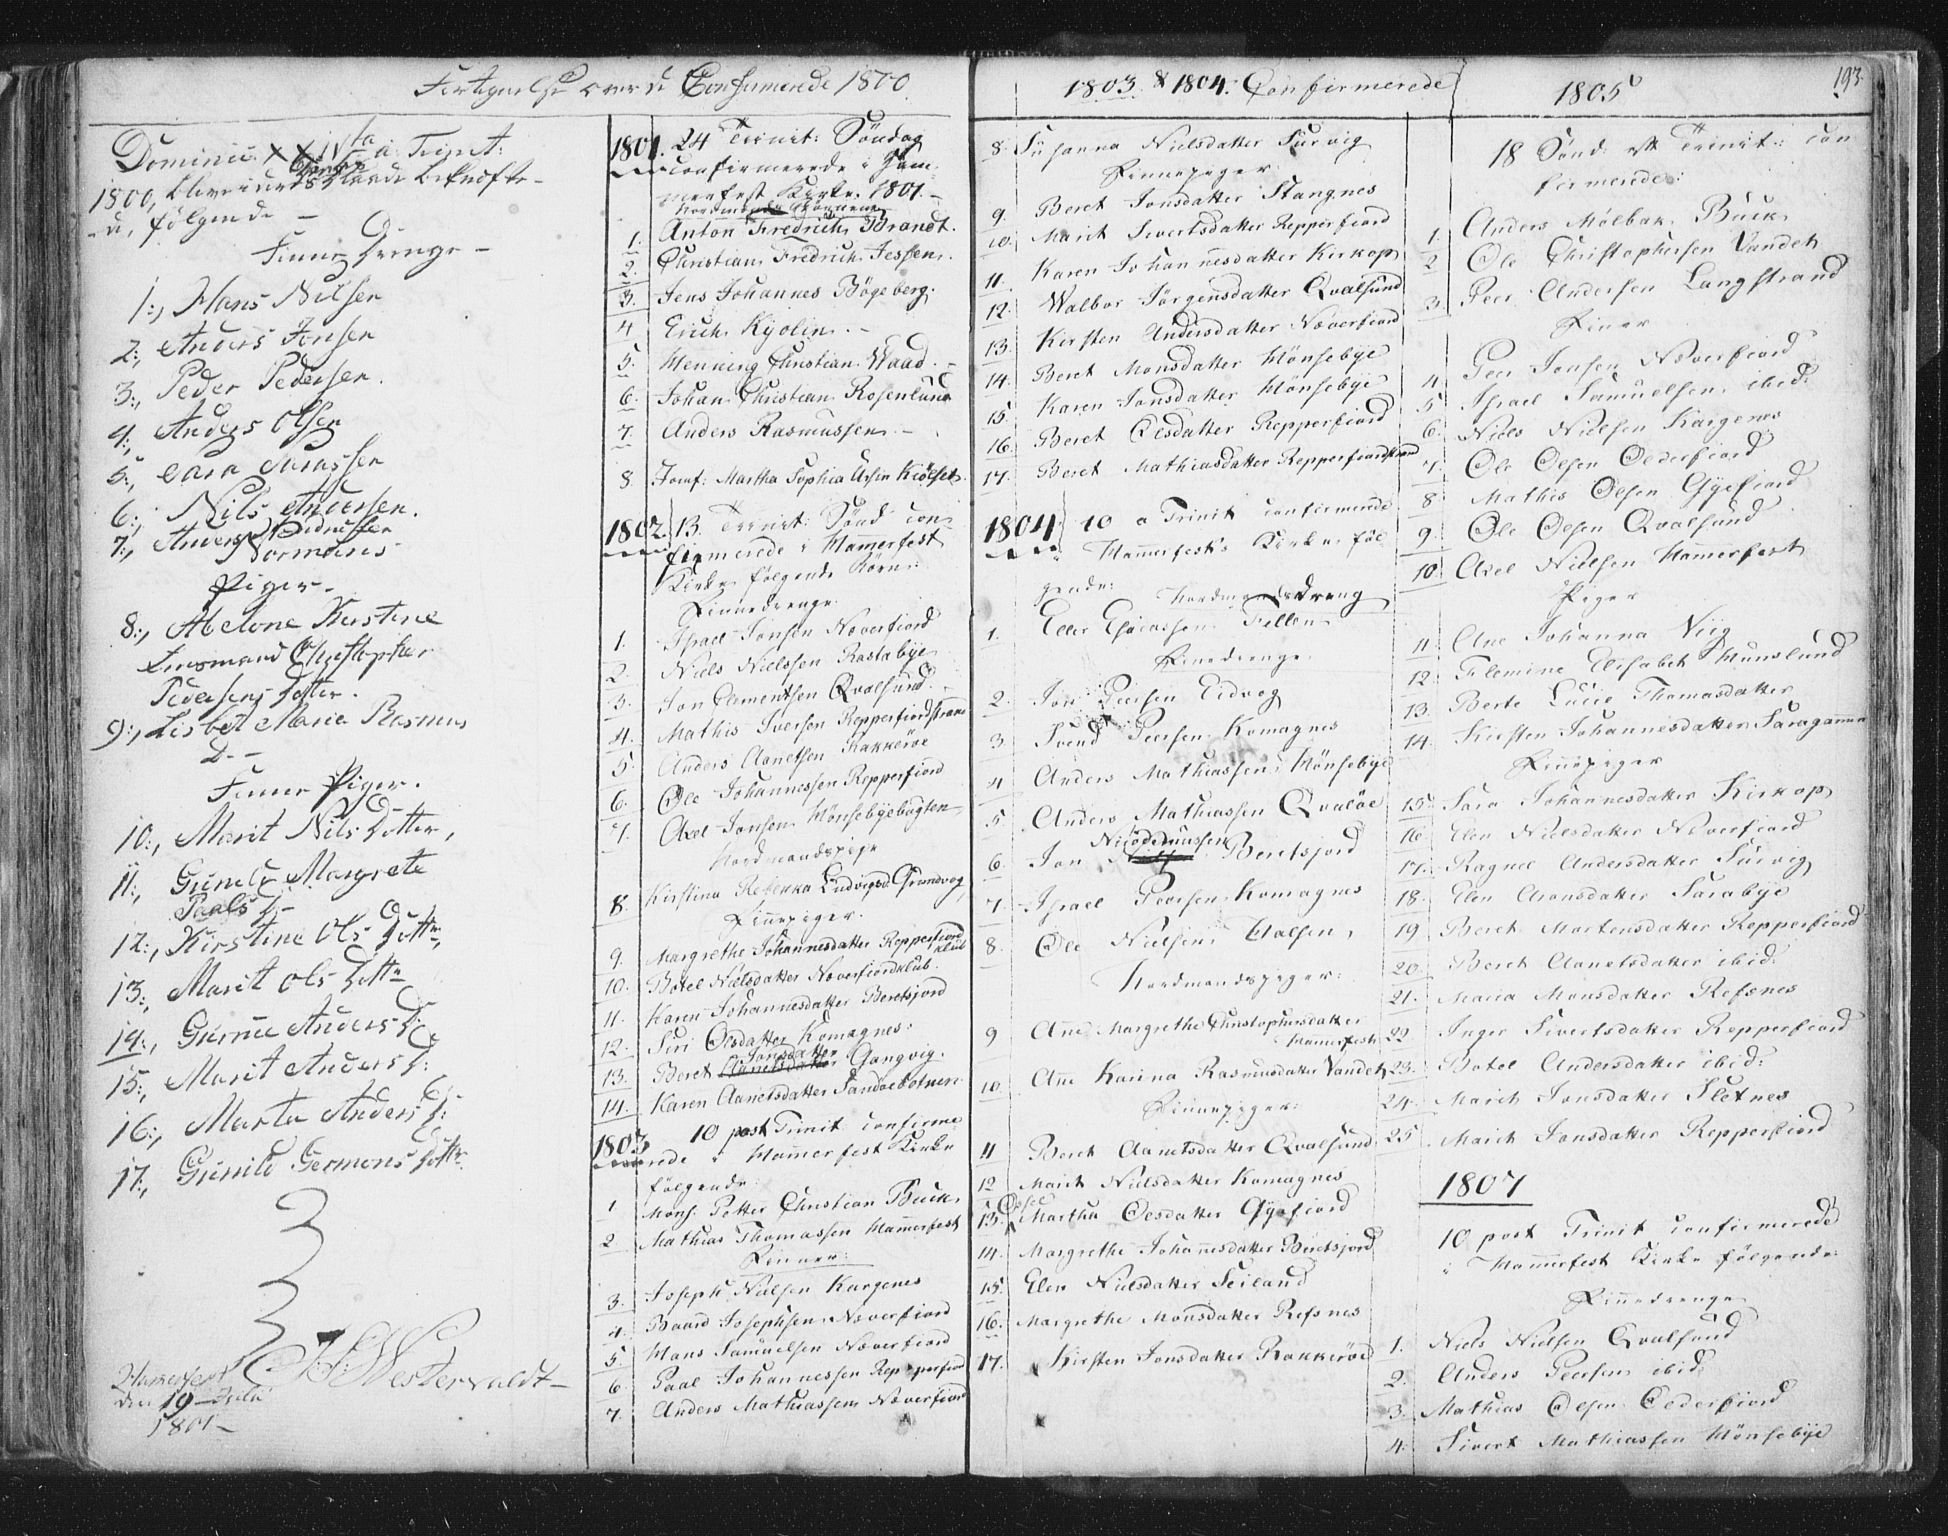 Fortegnelse over de Confirmerede 1800
Dominica XXIV ta a Trinit:
1800, bleve i
følgende -
Finne Drenge -
1:, Hans Nilsen
2:, Anders Jonsen
3:, Peder Pedersen.
4:, Anders Olsen
5:,
6:, Nils Andersen.
7:, Anders
Normands
Piger -
8:, Abelone Kirstine
Christopher
Pedersens Dotter.
9:, Lisbet Marie Rasmus
D. -
Finne Piger.
10:, Marit Nils Dotter,
11:, Gunild Margrete
Paals D -
12:, Kirstine Ols Dottr,
13:, Marit Ols Dottr
14:, Anders D:
15:, Marit Anders D:
16:, Marta Anders D:
17:, Gunild Germons Dottr.
Westervaldt -
Hamerfest
den 19 - Julii
1801 -
1801. 24 Trinit: Søndag
confirmerede i Ham-
merfest Kirke 1801. -
1. Anton Fredrich Brandt.
2. Christian Fredrich Jessen.
3. Jens Johannes Bøgeberg.
4 Erich Kyolin. -
5. Henning Christian Waad. -
6. Johan Christian Rosenlund
7. Anders Rasmussen. -
8. Jomf: Martha Sophia Ursin Kiølset.
1802. 13. Trinit: Sønd con-
firmerede i Hamerfest
Kirke følgende Børn:
Finnedrenge
1. Israel Jonsen Næverfiord
2. Niels Nielssen Rastabye
3. Jon Clementsen Qvalsund.
4. Mathis Iversen Repperfiordstrand
5. Anders Aanetsen Kakkerøe
6. Ole Johannessen Repperfiord
7. Axel Jonsen Hønsebyebugten
Nordmandspige
8. Kirstina Rebekka Ludvigsd. Grundvog
Finnepiger.
9. Margrethe Johannesdatter Repperfiord
klub
10. Botel Nielsdatter Næverfiordklub.
11. Karen Johannesdatter Beretsjord
12. Siri Olsdatter Komagnes.
Jonsdatter
13. Beret Aanetsdatter Gangvig.
14. Karen Aanetsdatter Sandøebotnen.
1803 10 post Trinit confirme-
rede i Hamerfest Kirke
følgende:
1 Mons: Petter Christian Buck.
2 Mathias Thomassen Hamerfest
Finner:
3. Joseph Nielsen Kargenes
4. Baard Josephsen Næverfiord
5. Hans Samuelsen Næverfiord
6. Paal Johannessen Repperfiord
7. Anders Mathiassen Næverfiord
1803 & 1804. Confirmerede
8. Susanna Nielsdatter Survig
Finnepiger
9. Beret Jonsdatter Stangnes
10. Marit Sivertsdatter Repperfiord
11. Karen Johannesdatter Kirkop
12. Walbor Jørgensdatter Qvalsund
13. Kirsten Andersdatter Næverfiord
14. Beret Monsdatter Hønsebye
15. Karen Jonsdatter Hønsebye
16. Beret Olsdatter Repperfiord
17. Beret Mathiasdatter Repperfiordstrand
1804 10 a Trinit confirmerede
i Hamerfests Kirke føl-
gende:
Nordmandsdreng
1. Eller Fillen
Finnedrenge.
2. Jon Peersen Eidvog
3 Svend Peersen Komagnes
4 Anders Mathiassen Hønsebye
5. Anders Mathiassen Qvaløe
Nicodemussen
6. Jon Beretsjord
7. Israel Peersen Komagnes
8. Ole Nielsen
Nordmandspiger:
9 Ane Margrethe Christophersdatter
Hamerfest
10. Ane Karina Rasmusdatter Vandet
Finnepiger:
11 Beret Aanetsdatter Qvalsund
12 Marit Nielsdatter Komagnes
13. Martha Olesdatter Gyefiord
14. Margrethe Johanesdatter Beretsjord
15. Elen Nielsdatter Seiland
16. Margrethe Monsdatter Refsnes
17. Kirsten Jonsdatter Kakkerøe
1805 193.
18 Sønd eft Trinit: con-
firmerede:
1. Anders Mølbak Buck
2 Ole Christophersen Vandet
3. Peer Andersen Langstrand
Finner
4. Peer Jonsen Næverfiord
5 Israel Samuelsen ibid:
6. Niels Nielsen Kargenes
7. Ole Olsen Olderfiord
8 Mathis Olsen Gyefiord
9. Ole Olsen Qvalsund
10. Axel Nielsen Hamerfest
Piger
11 Ane Johanna Viig
12 Flemine Elisabet Munslund
13. Berte Lucie Thomasdatter
14. Kirsten Johannesdatter Saragammen
Finnepiger
15. Sara Johannesdatter Kirkop
16 Elen Nielsdatter Næverfiord
17. Ragnel Andersdatter Survig
18. Elen Aronsdatter Sarabye
19 Beret Mortensdatter Repperfiord
20. Beret Aanetsdatter ibid:
21. Maria Monsdatter Refsnes
22 Inger Sivertsdatter Repperfiord
23. Botel Andersdatter ibid:
24. Marit Jonsdatter Sletnes
25 Marit Jonsdatter Repperfiord
1807
10 post Trinit confirmerede
i Hamerfest Kirke følgende:
Finnedrenge
1. Niels Nielsen Qvalsund
2. Anders Peersen ibid:
3. Mathias Olsen Olderfiord
4. Sivert Mathiassen Hønsebye